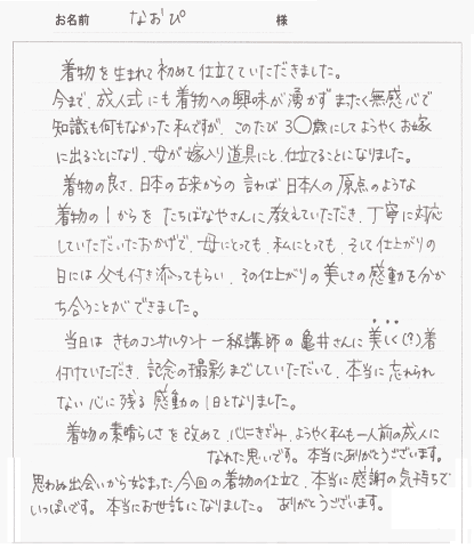 お名前 なおぴ 様
着物を生まれて初めて仕立てていただきました。
今まで、成人式にも着物への興味が湧かずまったく無感心で
知識も何もなかった私ですが、このたび3〇歳にしてようやくお嫁
に出ることになり、母が嫁入り道具にと、仕立てることになりました。
着物の良さ、日本の古来からの言わば日本人の原点のような
着物の1からをたちばなやさんに教えていただき、丁寧に対応
していただいたおかげで、母にとっても、私にとっても、そして仕上がりの
日には父も付き添ってもらい、その仕上がりの美しさの感動を分か
ち合うことができました。
当日はきものコンサルタント一級講師の亀井さんに美しく(?)着
付けていただき、記念の撮影までしていただいて、本当に忘れられ
ない心に残る感動の1日となりました。
着物の素晴らしさを改めて、心にきざみ、ようやく私も一人前の成人に
なれた思いです。本当にありがとうございます。
思わぬ出会いから始まった今回の着物の仕立て、本当に感謝の気持ちで
いっぱいです。本当にお世話になりました。ありがとうございます。